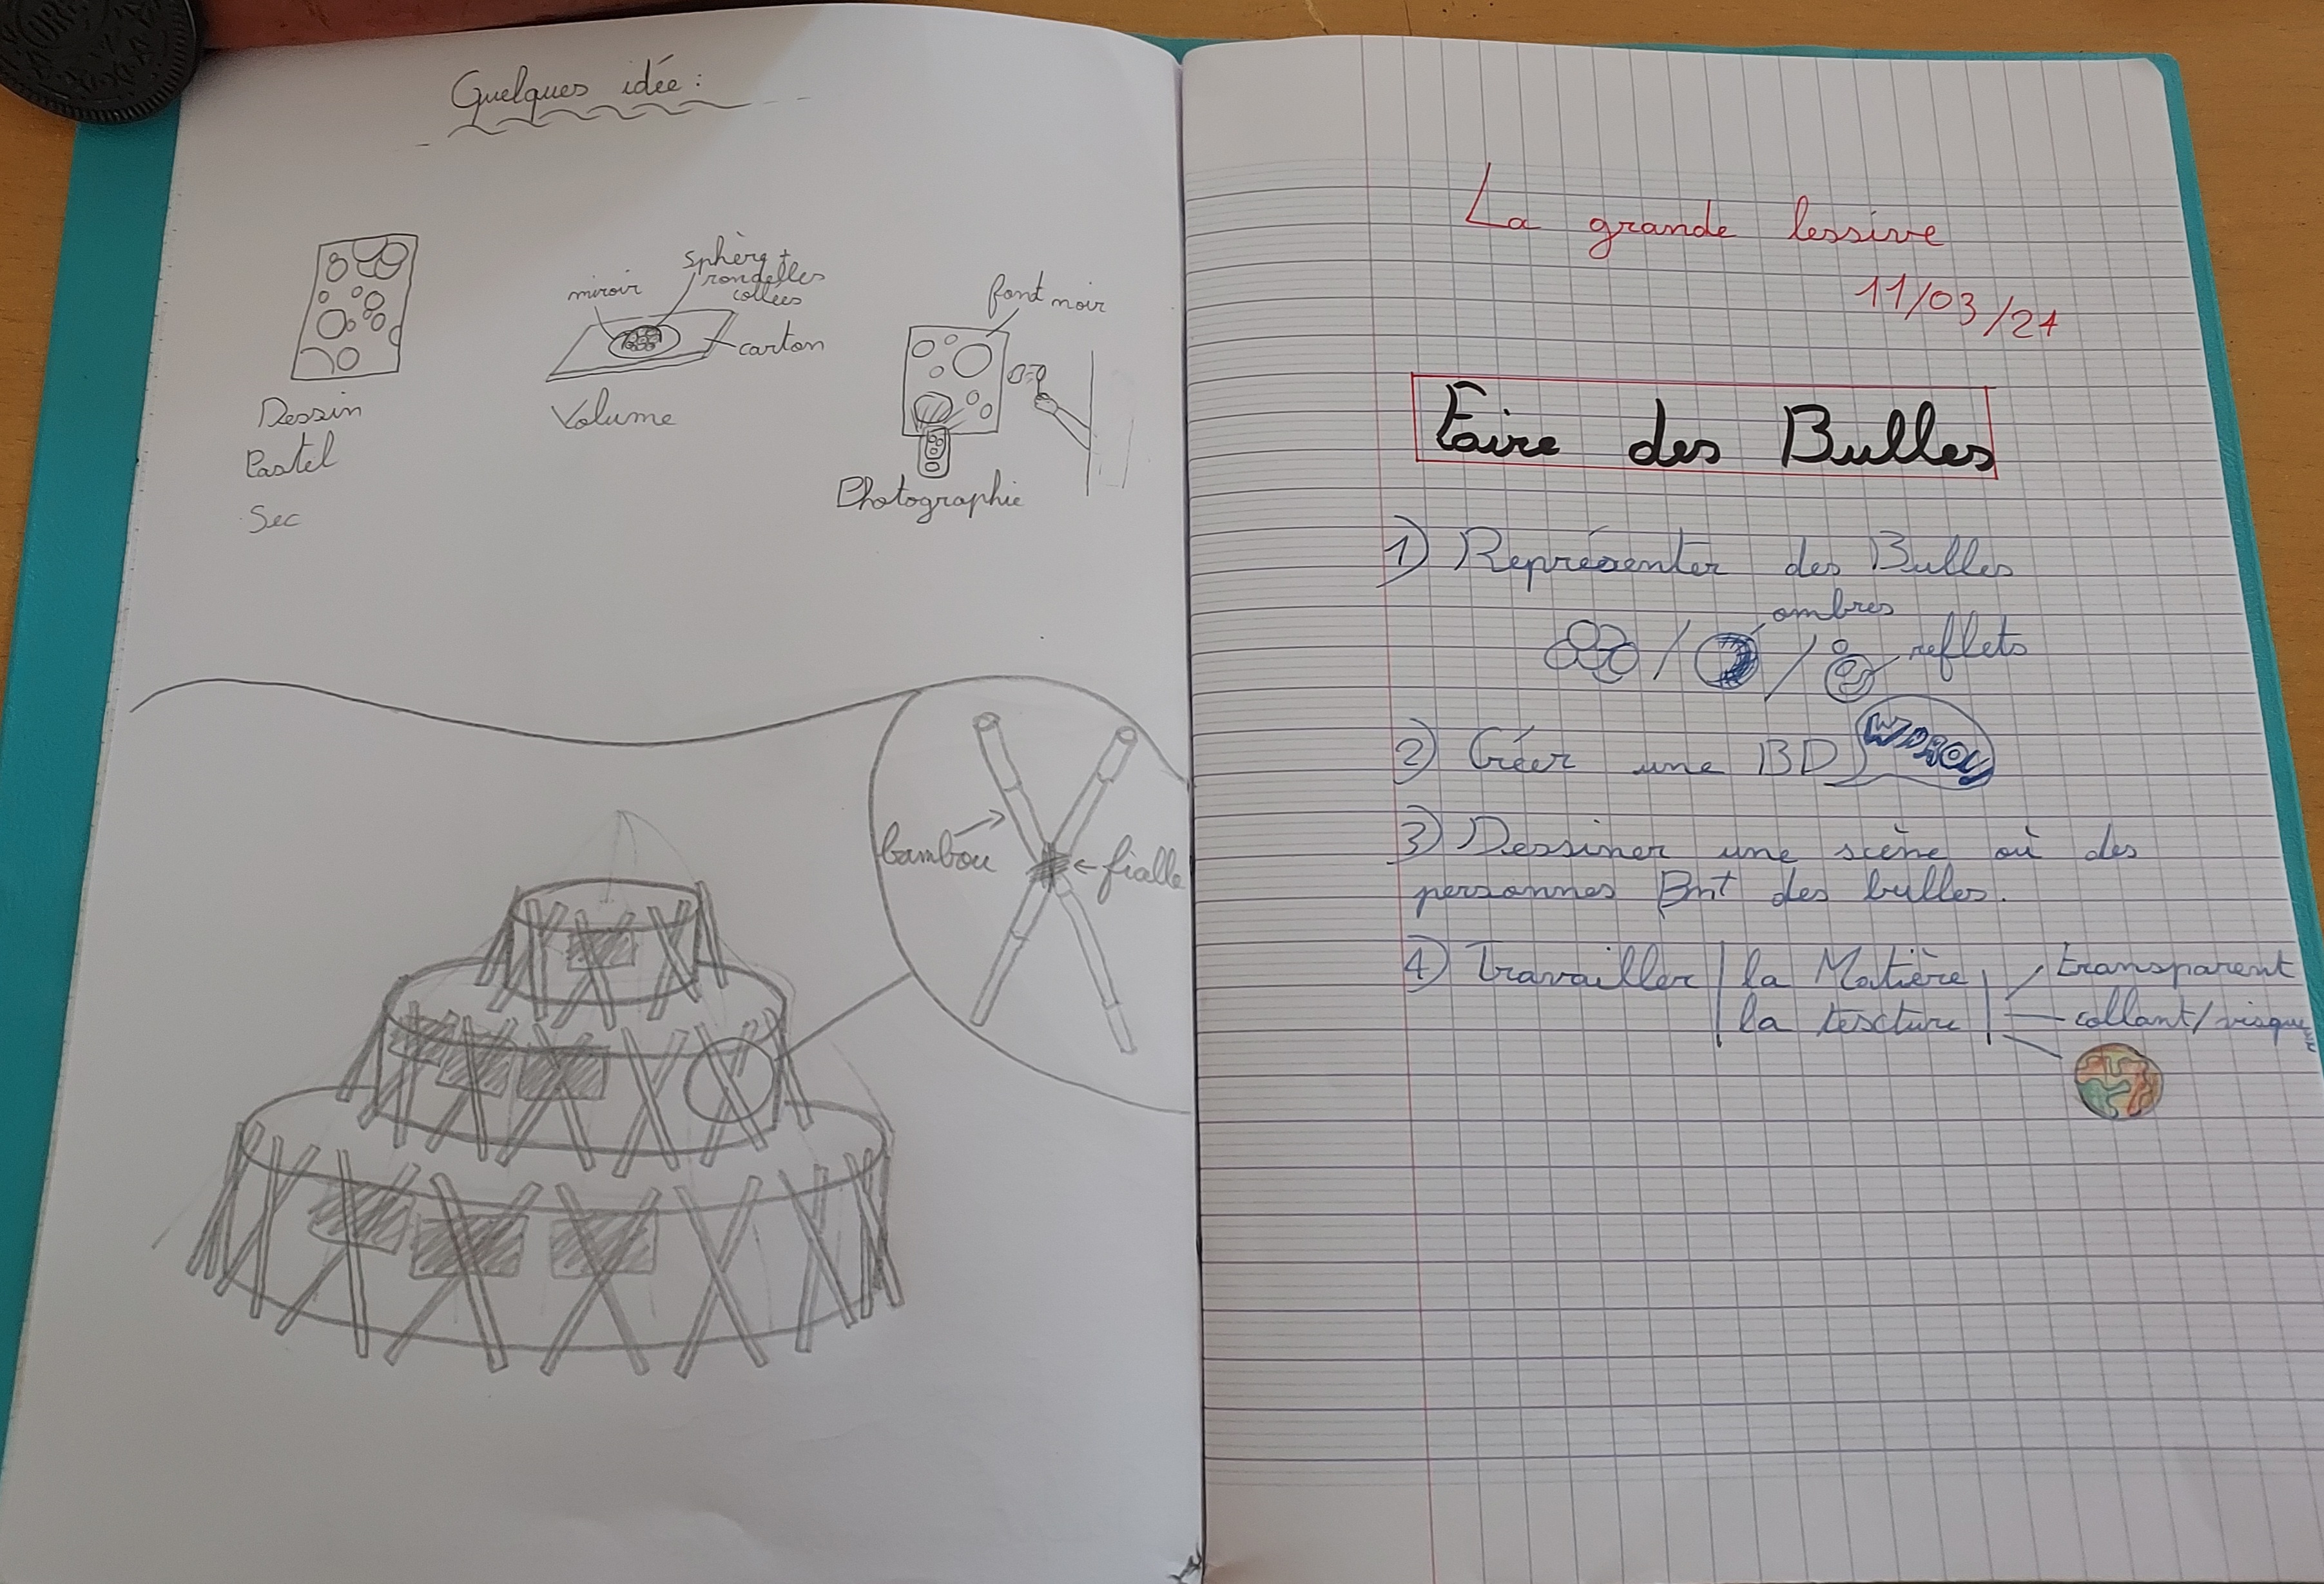 Quelques idée :
miroir
sphère +
rondelles
collées
carton
font noir
Dessin
Pastel
Sec
Volume
Photographie
bambou
fialle
La grande lessive
11/03/21
Faire des Bulles
1) Représenter des Bulles
ombres
reflets
2) Créer une BD
3) Dessiner une scène où des
personnes font des bulles.
4) Travailler la Matière
la texture
transparent
collant/visqueux